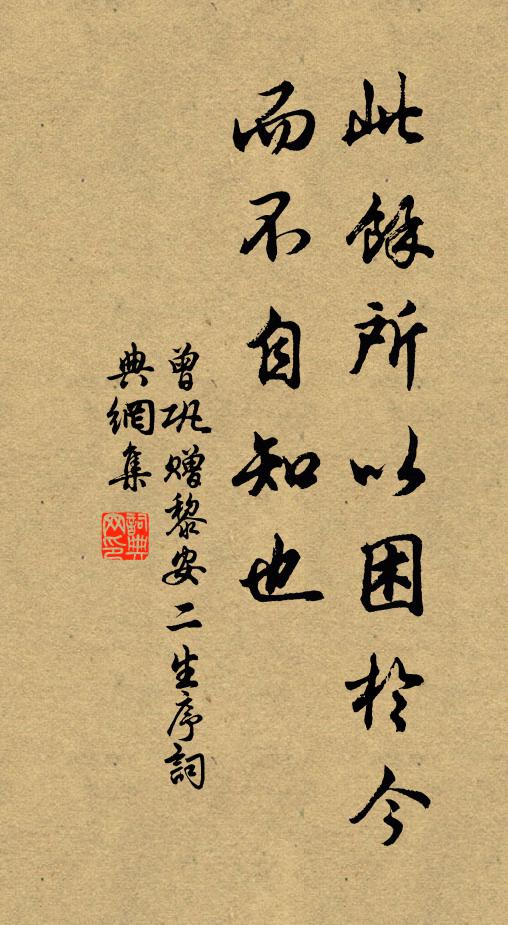 此餘所以困於今
而不自知也
曾巩贈黎安二生序詞
典網集
詞典
网印